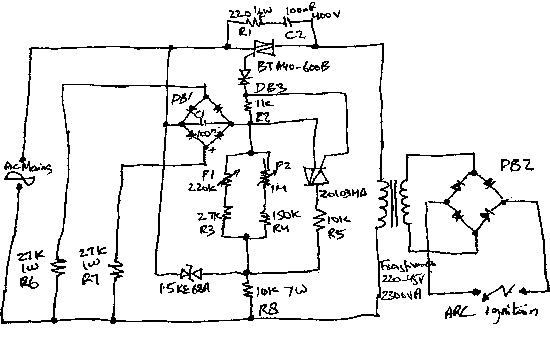 220 1/2W
100nF
400V
R1
C2
BTA40-600B
DB3
DB1
1K
R2
C1
100n
+
AC Mains
P1
220K
P2
1M
Z0103MA
DB2
27K
R3
150K
R4
10K
R5
27K
1W
R6
27K
1W
R7
1.5KE68A
10K 7W
R8
220-45V
2300VA
ARC Ignition